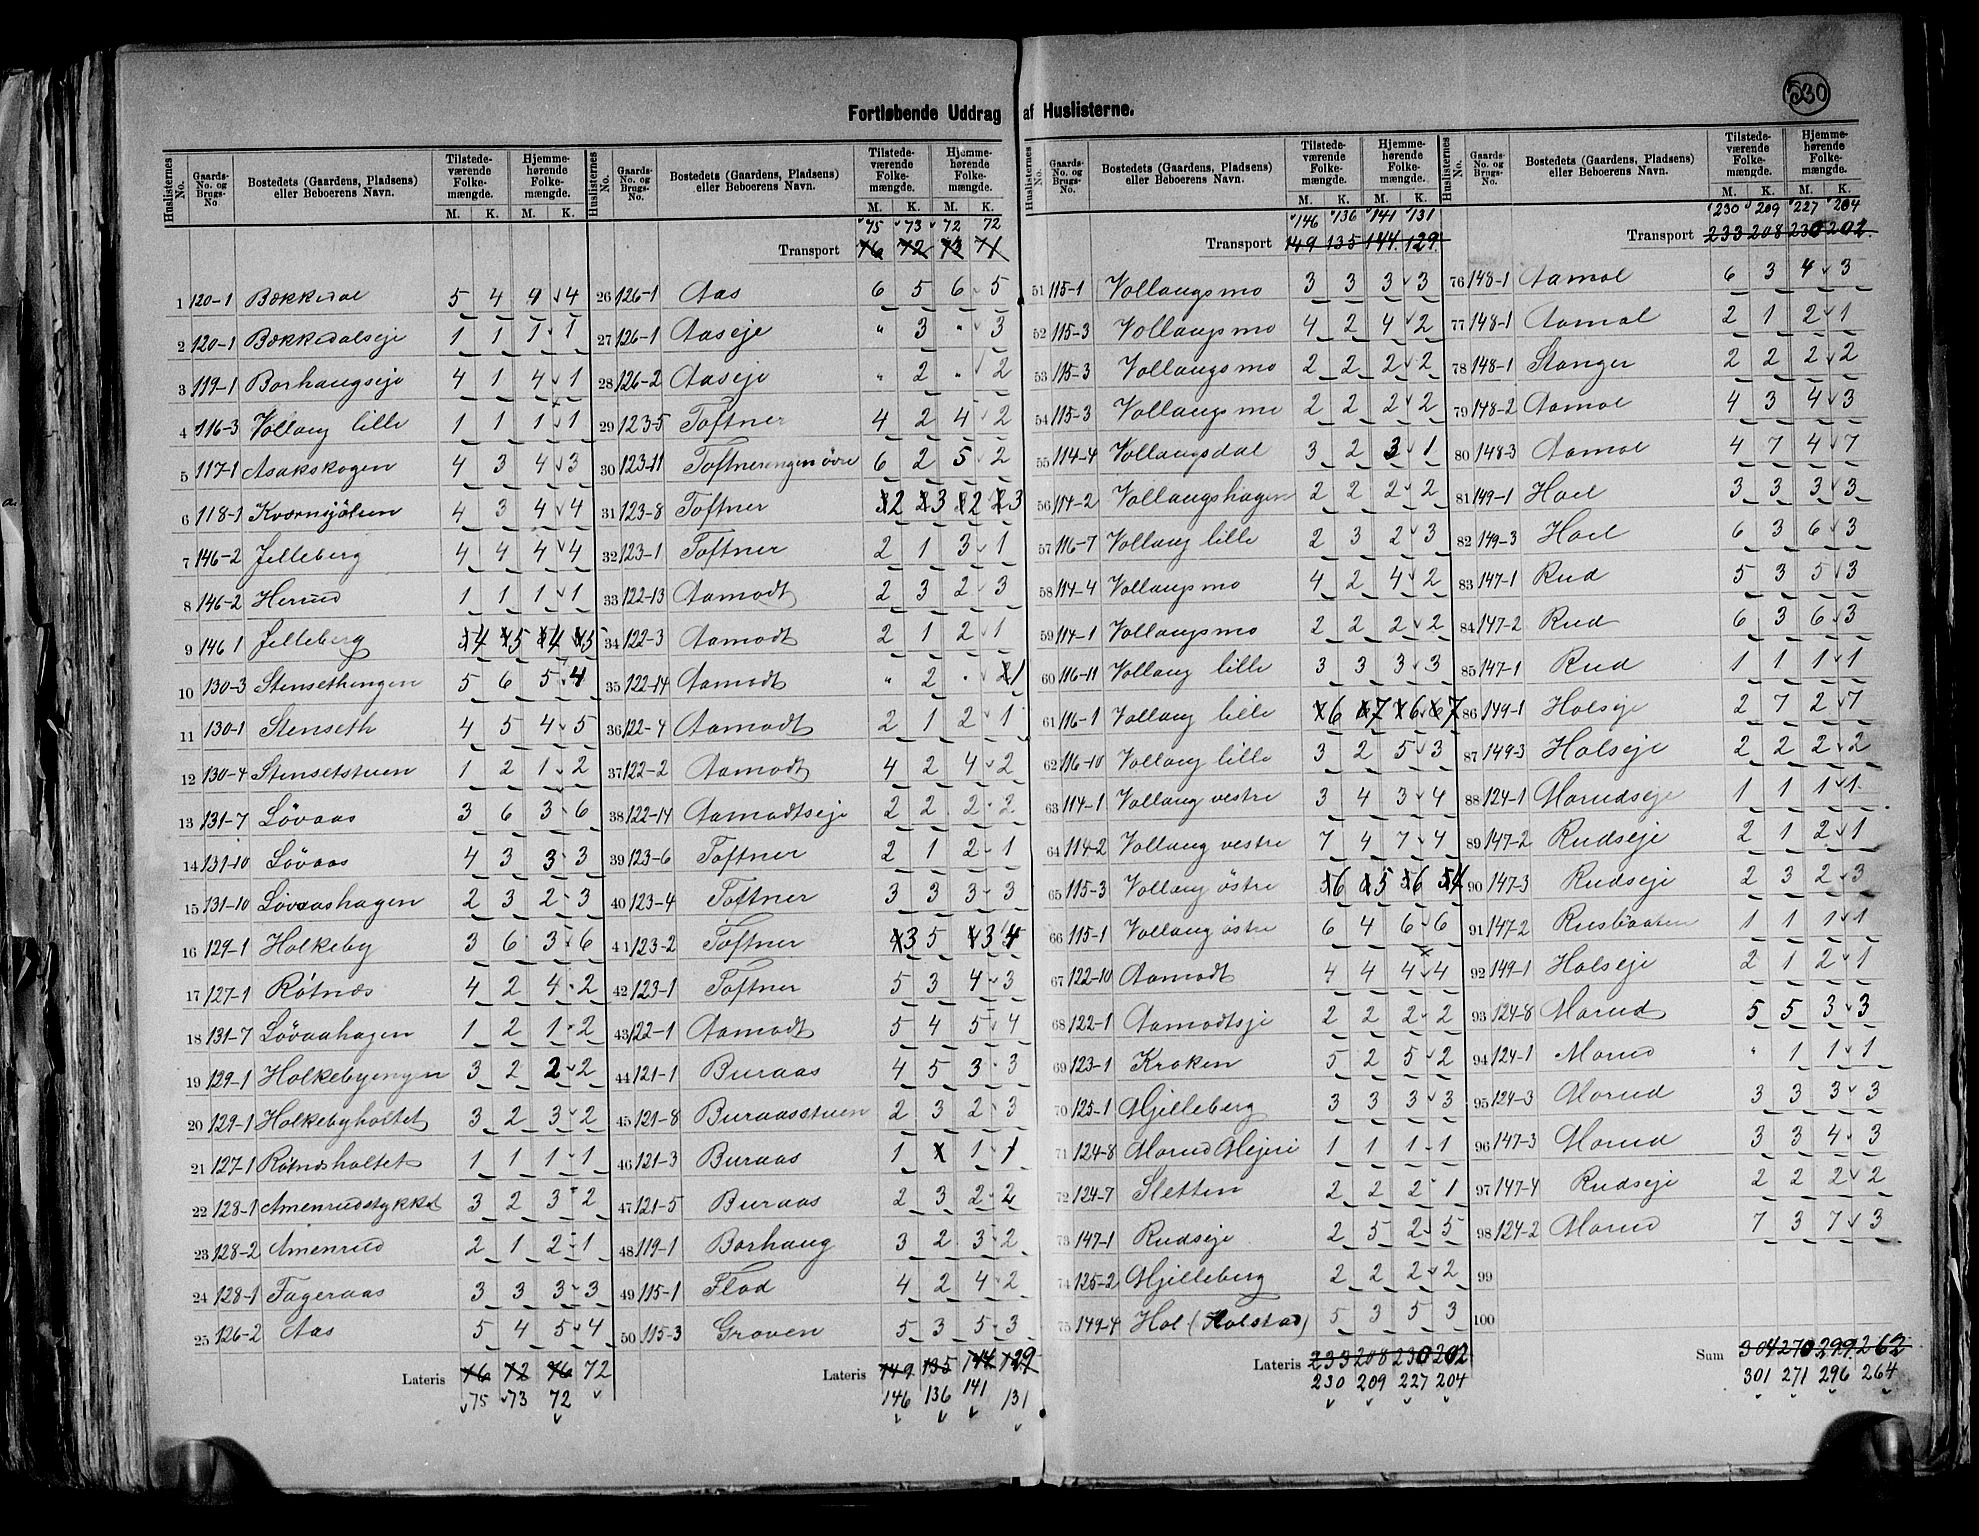 530
Fortløbende Uddrag af Huslisterne.
Huslisternes No. Gaards-No. og Brugs-No. Bostedets (Gaardens, Pladsens) eller Beboerens Navn. Tilstedeværende Folkemængde. Hjemmehørende Folkemængde.
M. K. M. K.
1 120-1 Bækkedal 5 4 4 4
2 120-1 Bækkedalseje 1 1 1 1
3 119-1 Borhaugseje 4 1 4 1
4 116-3 Vollaug lille 1 1 1 1
5 117-1 Asakskogen 4 3 4 3
6 118-1 Kværnsjölien 4 3 4 4
7 146-2 Jelleberg 4 4 4 4
8 146-2 Herud 1 1 1 1
9 146 1 Jelleberg 4 5 4 5
10 130-3 Stensethengen 5 6 5 4
11 130-1 Stenseth 4 5 4 5
12 130-4 Stensetstuen 1 2 1 2
13 131-7 Lövaas 3 6 3 6
14 131-10 Lövaas 4 3 3 3
15 131-10 Lövaashagen 2 3 2 3
16 129-1 Holkeby 3 6 3 6
17 127-1 Rötnæs 4 2 4 2
18 131-7 Lövaahagen 1 2 1 2
19 129-1 Holkebyengen 3 2 2 2
20 129-1 Holkebyholtet 3 2 3 2
21 127-1 Rötnæsholtet 1 1 1 1
22 128-1 Amenrudstykket 3 2 3 2
23 128-2 Amenrud 2 1 2 1
24 128-1 Fageraas 3 3 3 3
25 126-2 Aas 5 4 5 4
Lateris 76 72 76 72
75 73 72
75 73 72 72
Transport 76 72 73 71
26 126-1 Aas 6 5 6 5
27 126-1 Aaseje " 3 " 3
28 126-2 Aaseje " 2 " 2
29 123-5 Toftner 4 2 4 2
30 123-11 Toftnerengen övre 6 2 5 2
31 123-8 Toftner 2 3 2 3
32 123-1 Toftner 2 1 3 1
33 122-13 Aamodt 2 3 2 3
34 122-3 Aamodt 2 1 2 1
35 122-14 Aamodt " 2 " 1
36 122-4 Aamodt 2 1 2 1
37 122-2 Aamodt 4 2 4 2
38 122-14 Aamodtseje 2 2 2 2
39 123-6 Toftner 2 1 2 1
40 123-4 Toftner 3 3 3 3
41 123-2 Toftner 3 5 3 4
42 123-1 Toftner 5 3 4 3
43 122-1 Aamodt 5 4 5 4
44 121-1 Buraas 4 5 3 3
45 121-8 Buraasstuen 2 3 2 3
46 121-3 Buraas 1 x 1 1
47 121-5 Buraas 2 3 2 2
48 119-1 Borhaug 3 2 3 2
49 115-1 Flad 4 2 4 2
50 115-3 Groven 5 3 5 3
Lateris 149 135 144 129
146 136 141 131
146 136 141 131
Transport 149 135 144 129
51 115-1 Vollaugsmo 3 3 3 3
52 115-3 Vollaugsmo 4 2 4 2
53 115-3 Vollaugsmo 2 2 2 2
54 115-3 Vollaugsmo 2 2 2 2
55 114-4 Vollaugsdal 3 2 3 1
56 114-2 Vollaugshagen 2 2 2 2
57 116-7 Vollaug lille 2 3 2 3
58 114-4 Vollaugsmo 4 2 4 2
59 114-1 Vollaugsmo 2 2 2 2
60 116-11 Vollaug lille 3 3 3 3
61 116-1 Vollaug lille 6 7 6 7
62 116-10 Vollaug lille 3 2 5 3
63 114-1 Vollaug vestre 3 4 3 4
64 114-2 Vollaug vestre 7 4 7 4
65 115-3 Vollaug östre 6 5 6 4
66 115-1 Vollaug östre 6 4 6 6
67 122-10 Aamodt 4 4 4 4
68 122-1 Aamodtsje 2 2 2 2
69 123-1 Kroken 5 2 5 2
70 125-1 Gjelleberg 3 3 3 3
71 124-8 Morud Mejeri 1 1 1 1
72 124-7 Sletten 2 2 2 1
73 147-1 Rudseje 2 5 2 5
74 125-2 Gjelleberg 2 2 2 2
75 149-4 Hol (Holstad) 5 3 5 3
Lateris 233 208 230 202
230 209 227 204
230 209 227 204
Transport 233 208 230 202
76 148-1 Aamol 6 3 4 3
77 148-1 Aamol 2 1 2 1
78 148-1 Stanger 2 2 2 2
79 148-2 Aamol 4 3 4 3
80 148-3 Aamol 4 7 4 7
81 149-1 Hoel 3 3 3 3
82 149-3 Hoel 6 3 6 3
83 147-1 Rud 5 3 5 3
84 147-2 Rud 6 3 6 3
85 147-1 Rud 1 1 1 1
86 149-1 Holseje 2 7 2 7
87 149-3 Holseje 2 2 2 2
88 124-1 Morudseje 1 1 1 1
89 147-2 Rudseje 2 1 2 1
90 147-3 Rudseje 2 3 2 3
91 147-2 Rusbraaten 1 1 1 1
92 149-1 Holseje 2 1 2 1
93 124-8 Morud 5 5 3 3
94 124-1 Morud " 1 1 1
95 124-3 Morud 3 3 3 3
96 147-3 Morud 3 3 4 3
97 147-4 Rudseje 2 2 2 2
98 124-2 Morud 7 3 7 3
99
100
Sum 304 270 299 262
301 271 296 264